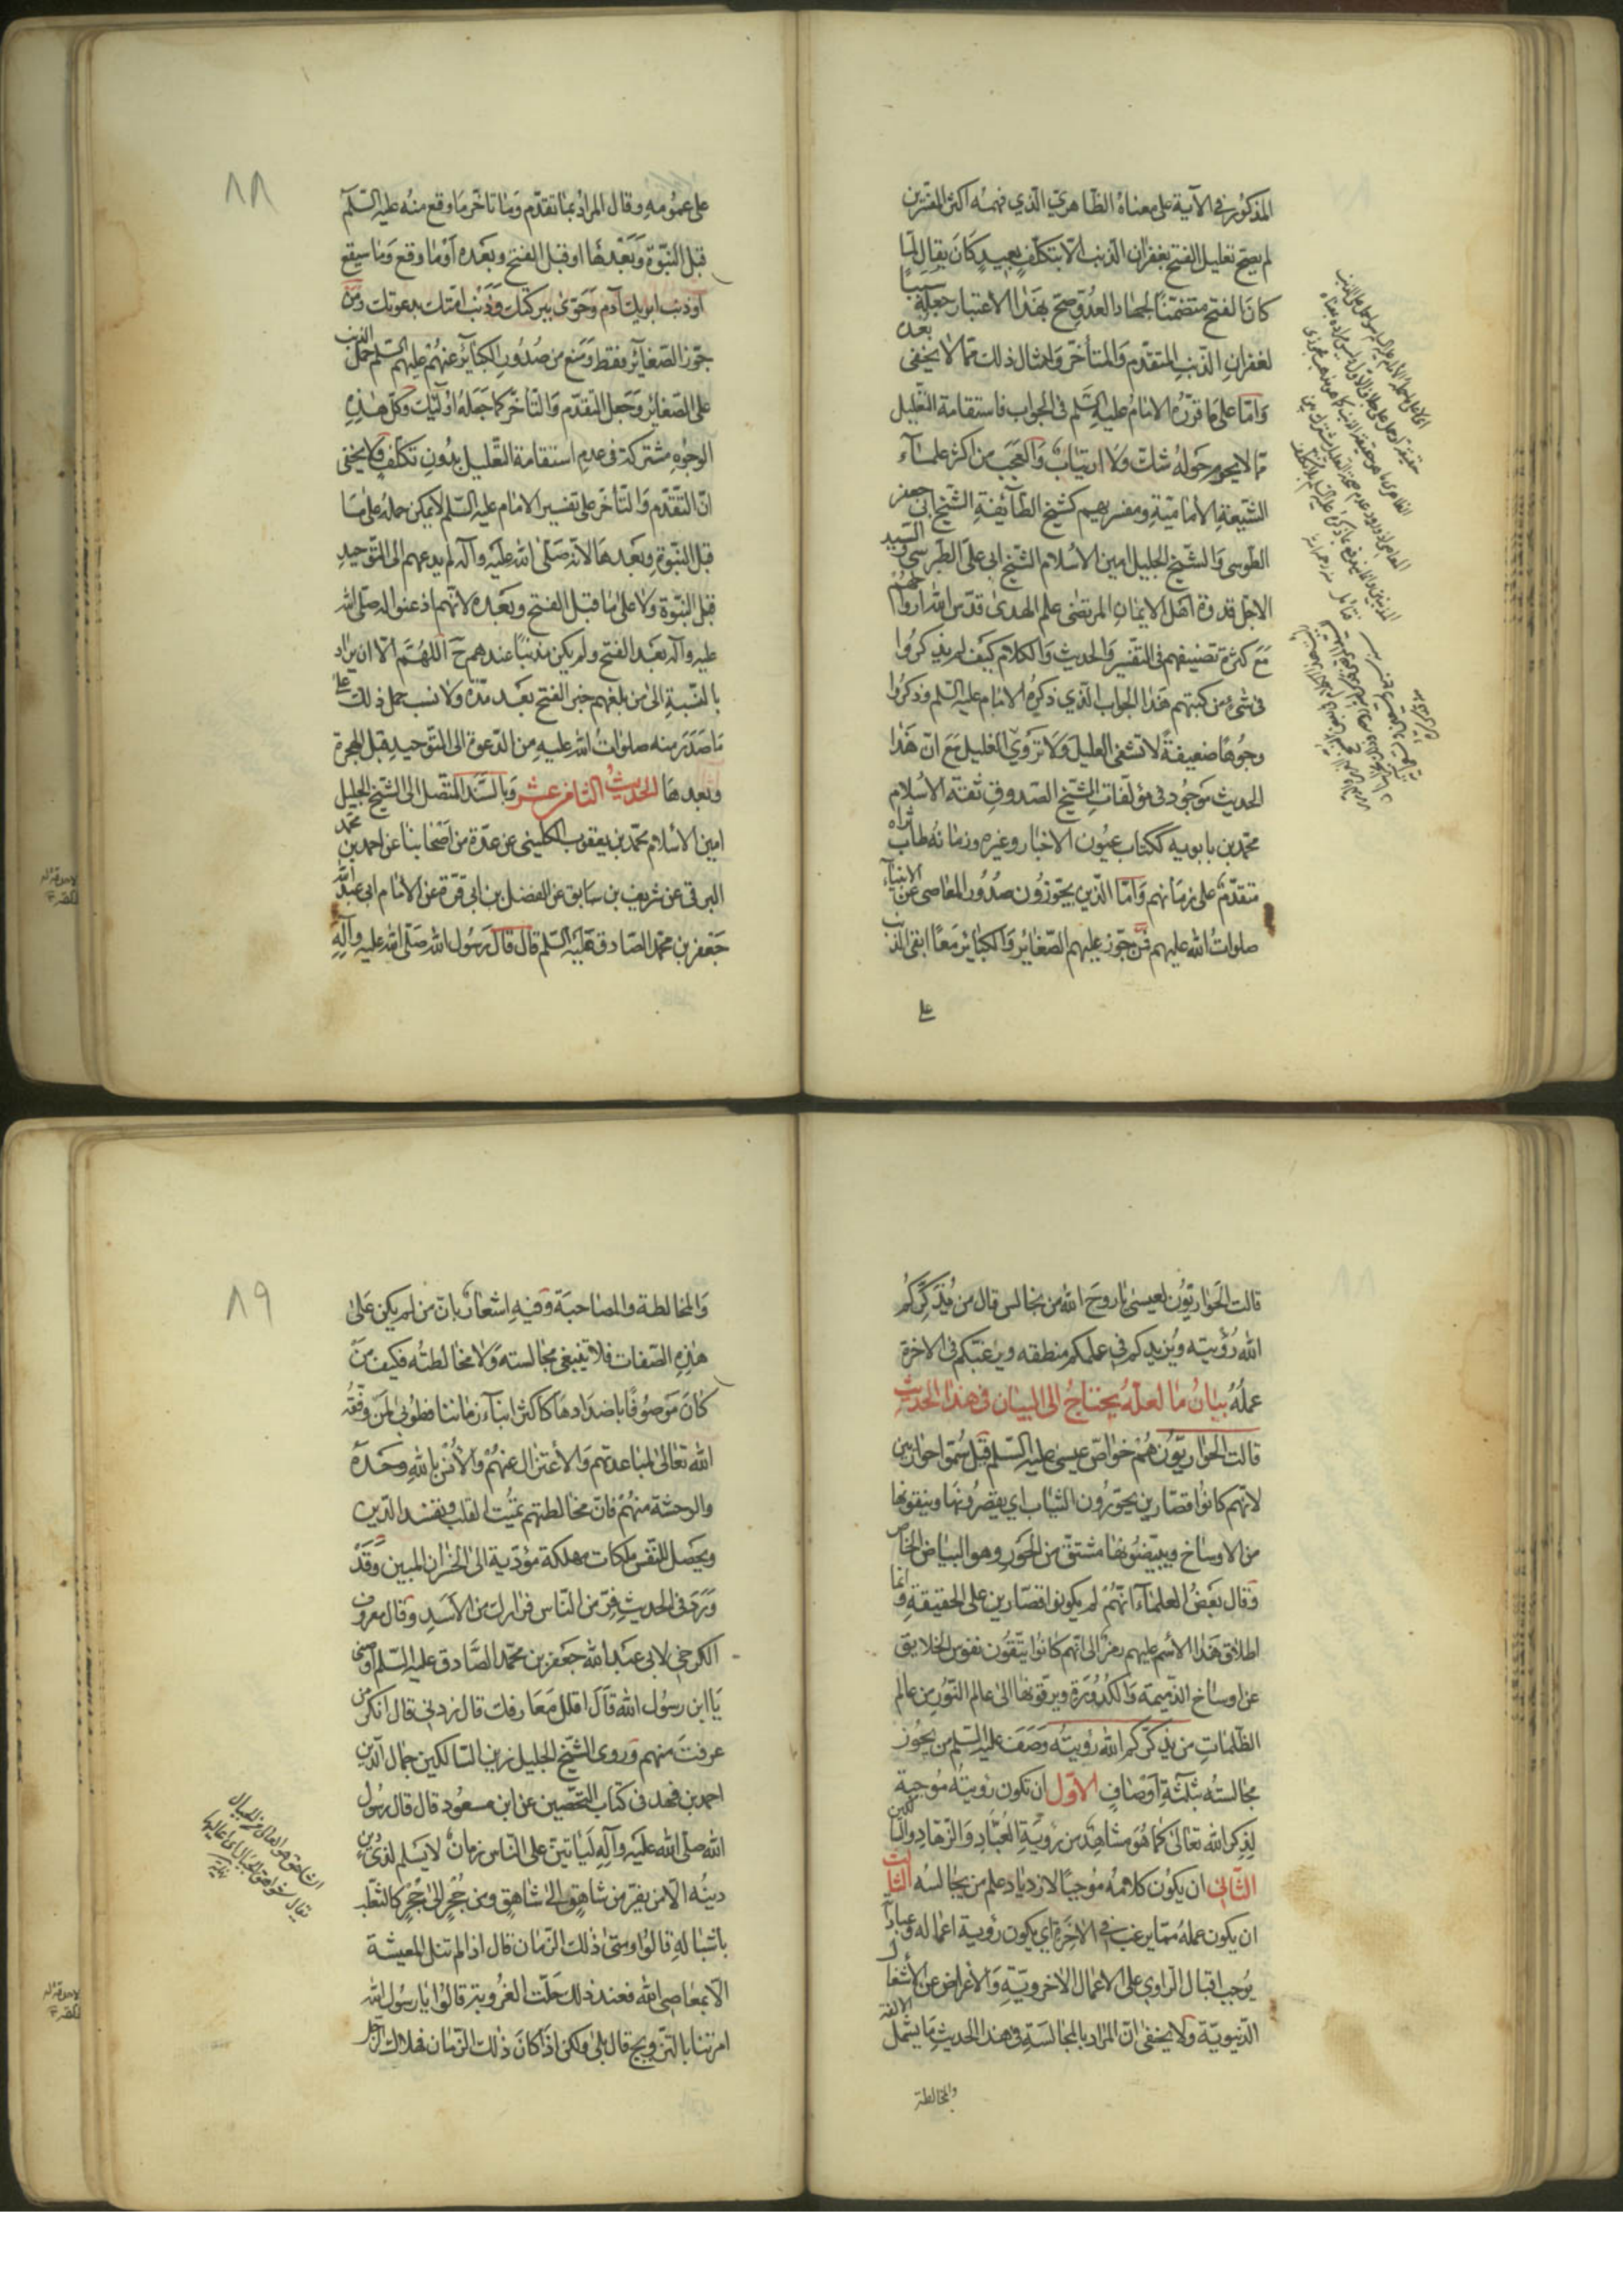 المذكور في الآية على معناه الظاهري الذي فهمه اكثر المفسرين
لم يصح تعليل الفتح بغفران الذنب الا بتكلف بعيد كان يقال لما
كان الفتح متضمنًا لجهاد العدو صح بهذا الاعتبار جعله سببا
لغفران الذنب المتقدم والمتأخر وامثال ذلك مما لا يخفى بعده
وامّا على ما قرره الامام عليه السّلم في الجواب فاستقامة التعليل
مما لا يحوم حوله شك ولا ارتياب والعجب من اكثر علماء
الشيعة الأمامية ومفسريهم كشيخ الطائفة الشيخ ابي جعفر
الطوسي والشيخ الجليل امين الأسلام الشيخ ابي علي الطبرسي والسيد
الاجل قدوة اهل الايمان المرتضى علم الهدى قدس الله ارواحهم
مع كثرة تصنيفهم في التفسير والحديث والكلام كيف لم يذكروا
في شيء من كتبهم هذا الجواب الذي ذكره الامام عليه السلم وذكروا
وجوهًا ضعيفة لا تشفي العليل ولا تروي الغليل مع انّ هذا
الحديث موجود في مؤلفات الشيخ الصدوق ثقة الاسلام
محمد بن بابويه ككتاب عيون الاخبار وغيره وزمانه طاب ثراه
متقدم على زمانهم وامّا الذين يجوزون صدور المعاصي عن الانبياء
صلوات الله عليهم فمن جوز عليهم الصغائر والكبائر معًا ابقى الذنب
على
٨٨
على عمومه وقال المراد بما تقدم وما تاخر ما وقع منه عليه السّلم
قبل النبوة وبعدها او قبل الفتح وبعده او ما وقع وما سيقع
او ذنب ابويك آدم وحوى ببركتك وذنب امتك بدعوتك ومن
جوز الصغائر فقط ومنع من صدور الكبائر عنهم عليهم السلم حمل الذنب
على الصغائر وجعل التقدم والتاخر كما جعله اولئك وكل هذه
الوجوه مشتركة في عدم استقامة التعليل بدون تكلف ولا يخفى
ان التقدم والتأخر على تفسير الامام عليه السلم لا يمكن حمله على ما
قبل النبوة وبعدها لانه صلى الله عليه وآله لم يدعهم الى التوحيد
قبل النبوة ولا على ما قبل الفتح وبعده لانهم اذعنوا له صلى الله
عليه وآله بعد الفتح ولم يكن مذنبًا عندهم ح اللهم الا ان يراد
بالنسبة الى من بلغهم خبر الفتح بعد مدة ولانسب حمل ذلك على
ما صدر منه صلوات الله عليه من الدعوة الى التوحيد قبل الهجرة
وبعدها الحديث الثامن عشر وبالسند المتصل الى الشيخ الجليل
امين الأسلام محمد بن يعقوب الكليني عن عدة من اصحابنا عن احمد بن محمد
البرقي عن شريف بن سابق عن الفضل بن ابي قرة عن الأمام ابي عبد الله
جعفر بن محمد الصادق عليه السلم قال قال رسول الله صلى الله عليه وآله
قالت الحواريون لعيسى يا روح الله من نجالس قال من يذكركم
الله رؤيته ويزيدكم في علمكم منطقه ويرغبكم في الاخرة
عمله بيان ما لعله يحتاج الى البيان في هذا الحديث
قالت الحواريون هم خواص عيسى عليه السلم قيل سموا حواريين
لانهم كانوا قصارين يحورون الثياب اي يقصرونها وينقونها
من الاوساخ ويبيضونها مشتق من الحور وهو البياض الخالص
وقال بعض العلماء انهم لم يكونوا قصارين على الحقيقة وانما
اطلاق هذا الأسم عليهم رمز الى انهم كانوا ينقون نفوس الخلايق
عن اوساخ الذميمة والكدورة ويرقونها الى عالم النور من عالم
الظلمات من يذكركم الله رؤيته وصف عليه السلم من يجوز
مجالسته بثلثة اوصاف الاول ان تكون رؤيته موجبة
لذكر الله تعالى كما هو مشاهد من رؤية العباد والزهاد والناسكين
الثاني ان يكون كلامه موجبًا لازدياد علم من يجالسه الثالث
ان يكون عمله مما يرغب في الاخرة اي يكون رؤية اعماله وعباداته
يوجب اقبال الراوي على الاعمال الاخروية والأعراض عن الأشغال
الدنيوية ولا يخفى ان المراد بالمجالسة في هذا الحديث ما يشمل الالفة
والمخالطة
٨٩
والمخالطة والمصاحبة وفيه اشعار بان من لم يكن على
هذه الصفات فلا تنبغي مجالسته ولا مخالطته فكيف من
كان موصوفًا باضدادها كاكثر ابناء زماننا فطوبى لمن وفقه
الله تعالى لمباعدتهم والأعتزال عنهم والأنس بالله وحده
والوحشة منهم فان مخالطتهم تميت القلب وتفسد الدين
ويحصل للنفس ملكات مهلكة مؤدية الى الخسران المبين وقد
ورد في الحديث فر من الناس فرارك من الأسد وقال معروف
الكرخي لابي عبد الله جعفر بن محمد الصادق عليه السلم اوصني
يا ابن رسول الله قال اقلل معارفك قال زدني قال انكر من
عرفت منهم وروى الشيخ الجليل زين السالكين جمال الدين
احمد بن فهد في كتاب التحصين عن ابن مسعود قال قال رسول
الله صلى الله عليه وآله لياتين على الناس زمان لا يسلم لذي دين
دينه الا من يفر من شاهق الى شاهق ومن جحر الى جحر كالثعلب
باشباله قالوا ومتى ذلك الزمان قال اذا لم تنل المعيشة
الا بمعاصي الله فعند ذلك حلت العزوبة قالوا يا رسول الله
امرتنا بالتزويج قال بلى ولكن اذا كان ذلك الزمان فهلاك الرجل
الشاهق هو العالي من الجبال
يقال شواهق الجبال اي اعاليها